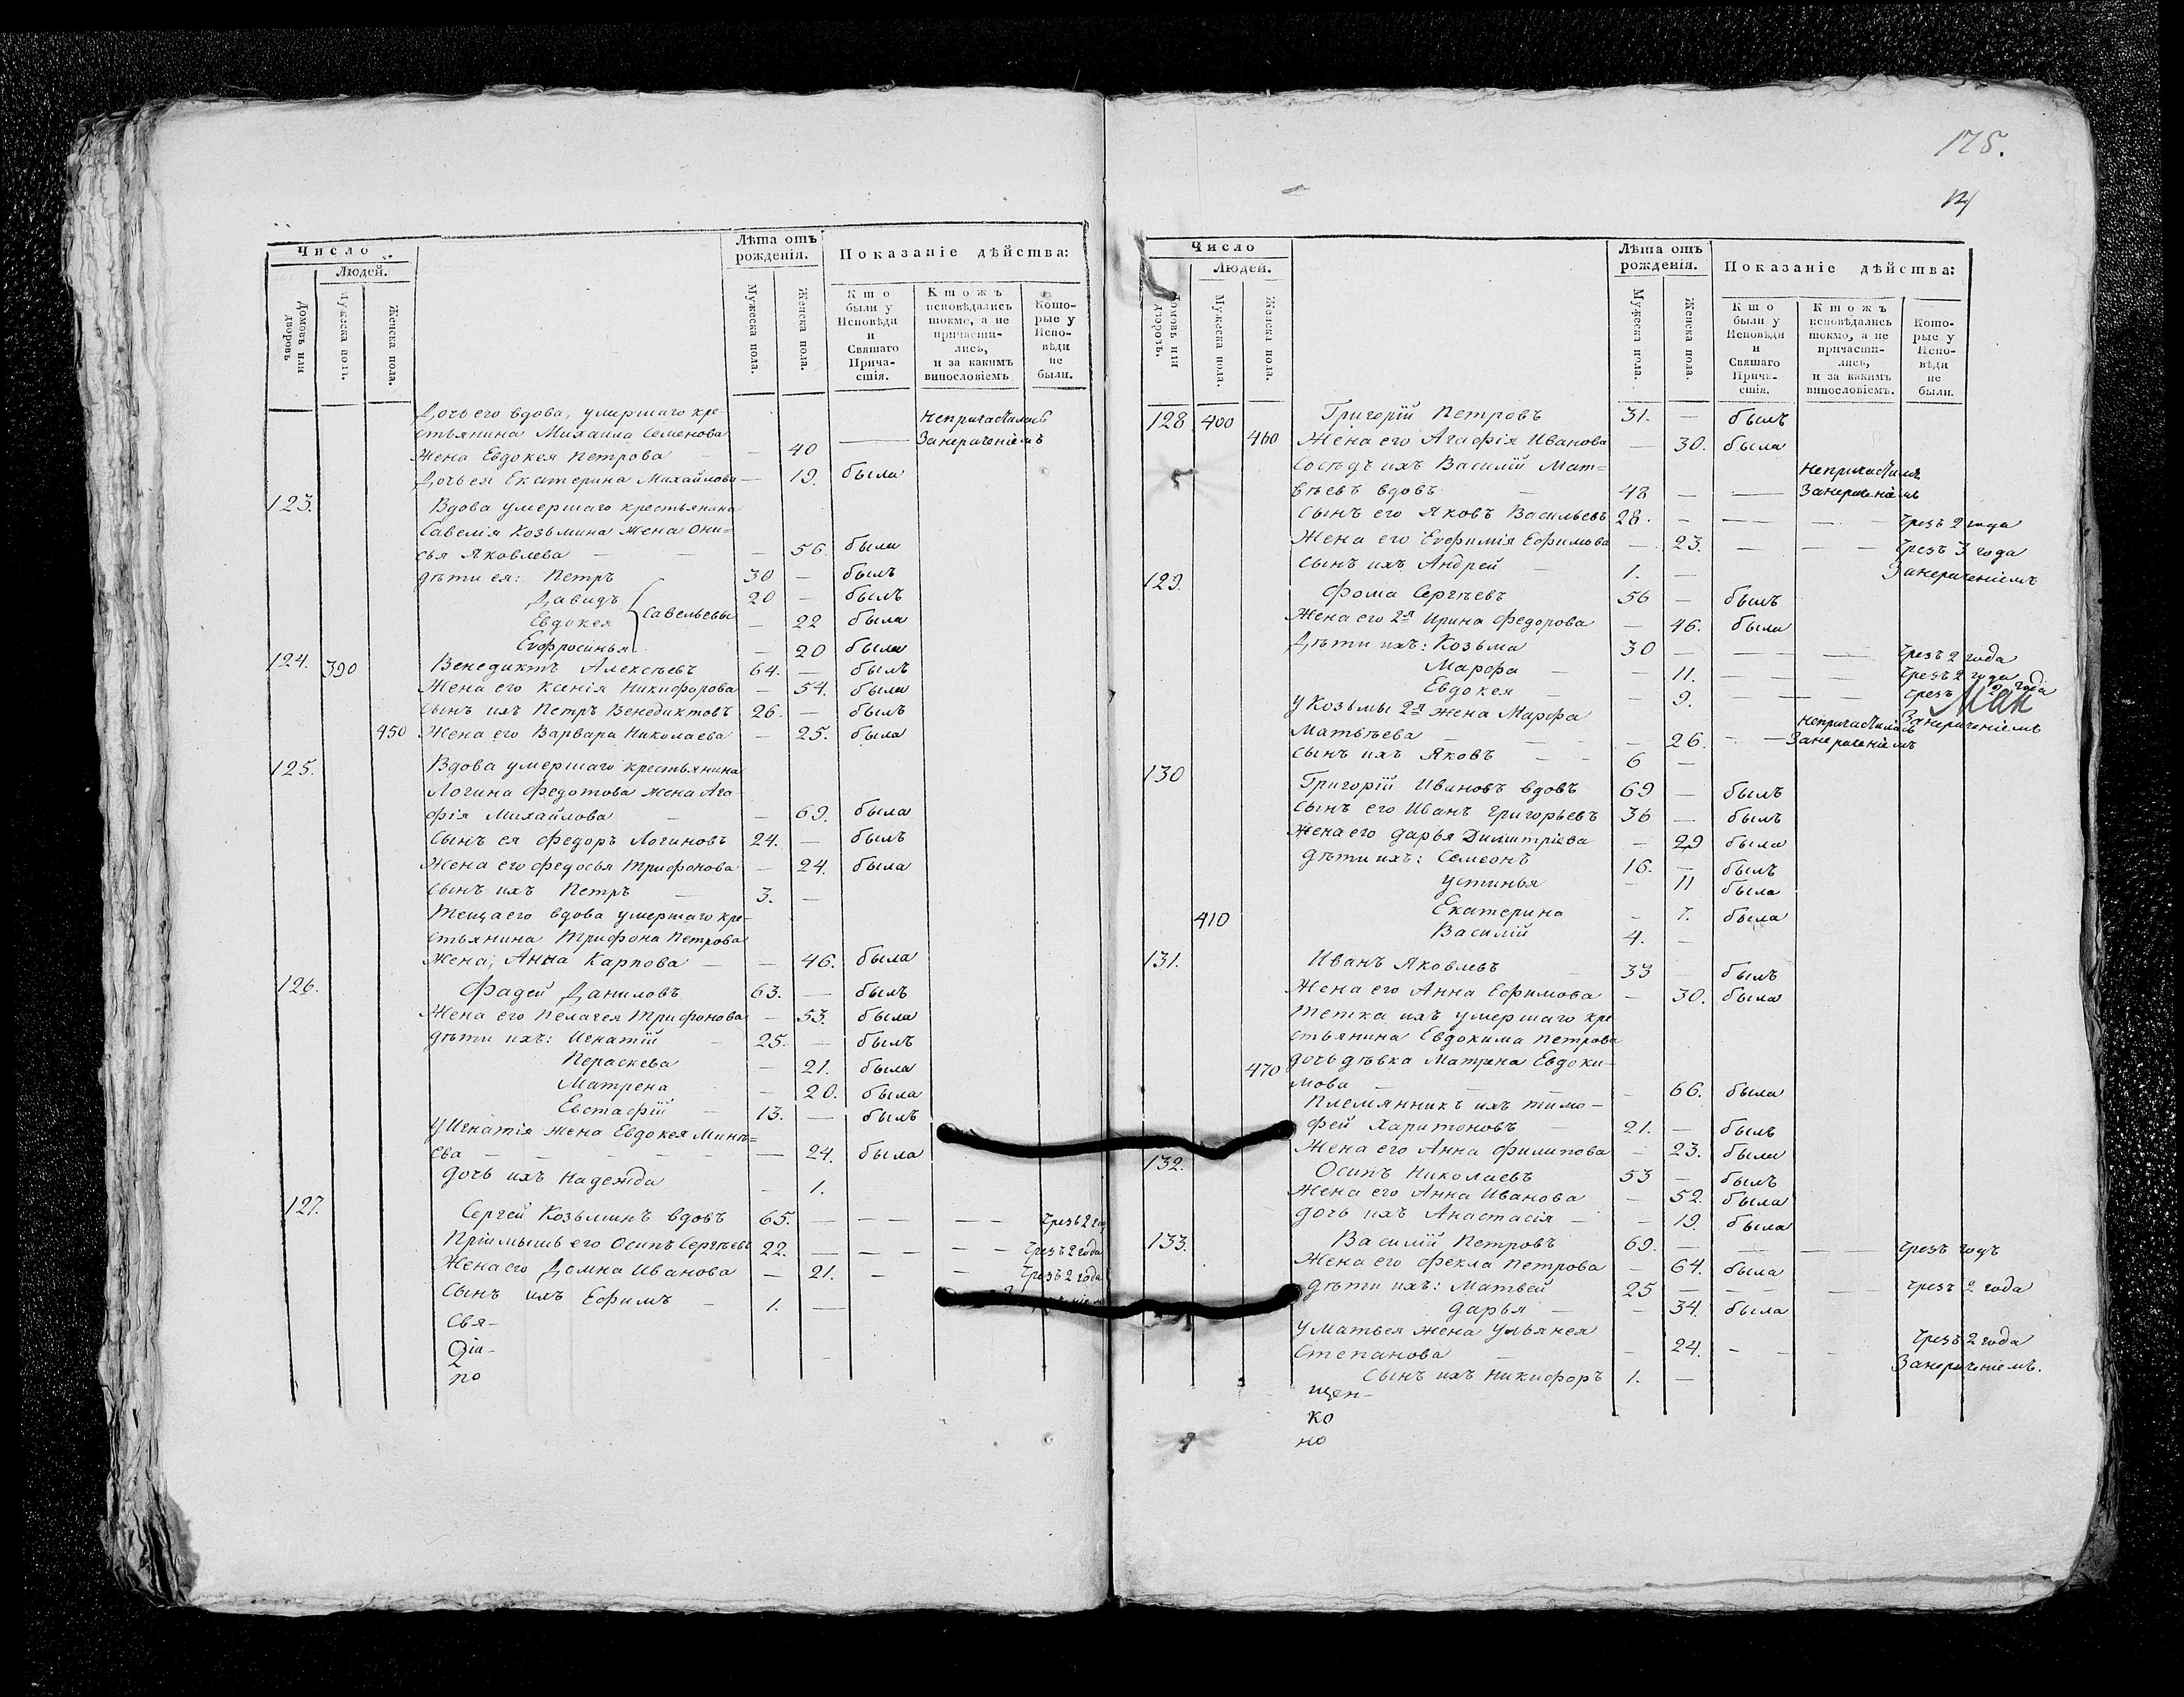 Число
Людей.
Домовъ или дворовъ
Мужеска пола.
Женска пола.
Лѣта отъ рожденія.
Мужеска пола.
Женска пола.
Показаніе дѣйства:
Кто были у Исповѣди и Святаго Причастія.
Ктожъ исповѣдались токмо, а не причастились, и за какимъ винословіемъ.
Которые у Исповѣди не были.
Дочь его вдова, умершаго кре
стьянина Михаила Семенова непричастилась
Жена Евдокея Петрова — 40 — Занерачениемъ
Дочь ея Екатерина Михайлова — 19. была
123. Вдова умершаго крестьянина
Савелія Козьмина жена Они=
сья Яковлева — — 56. была
дѣти ея: Петръ 30 — былъ
Давидъ 20 — былъ
Савельевы
Евдокея — 22 была
Евфросинья — 20 была
124. 390 Венедиктъ Алексѣевъ 64. — былъ
Жена его Ксенія Никифорова — 54. была
Сынъ ихъ Петръ Венедиктовъ 26. — былъ
450 Жена его Варвара Николаева — 25. была
125. Вдова умершаго крестьянина
Логина Федотова жена Ага
фія Михайлова — — 69. была
Сынъ ея Федоръ Логиновъ 24. — былъ
Жена его Федосья Трифонова — 24. была
Сынъ ихъ Петръ — 3. —
Теща его вдова умершаго кре-
стьянина Трифона Петрова
жена, Анна Карпова — — 46. была
126. Фадей Даниловъ 63. — былъ
Жена его Пелагея Трифонова — 53. была
дѣти ихъ: Игнатій — 25. — былъ
Параскева — 21. была
Матрена — 20. была
Евстафій — 13. — былъ
У Игнатія жена Евдокея Минѣ=
ева — — — 24. была
дочь ихъ Надежда — 1.
127. Сергей Козьминъ вдовъ 65. — — — Чрезъ 2 год
Пріимышъ его Осипъ Сергѣевъ 22. — — — Чрезъ 2 года
Жена его Домна Иванова — 21. — — Чрезъ 2 года
Сынъ ихъ Ефимъ — 1. —
Свя-
по
175.
Число
Людей.
Домовъ или дворовъ.
Мужеска пола.
Женска пола.
Лѣта отъ рожденія.
Мужеска пола.
Женска пола.
Показаніе дѣйства:
Кто были у Исповѣди и Святаго Причастія.
Ктожъ исповѣдались токмо, а не причастились, и за какимъ винословіемъ.
Которые у Исповѣди не были.
128 400 Григорій Петровъ 31. — былъ
460 Жена его Агафія Иванова — 30. была
Сосѣдъ ихъ Василій Мат= непричастилъ
вѣевъ вдовъ — 48 — — Занерачениемъ
Сынъ его Яковъ Васильевъ 28. — — — Чрезъ 2 года
Жена его Евфимія Ефимова — 23. — — Чрезъ 3 года
Сынъ ихъ Андрей — 1. — Занерачениемъ
129. Фома Сергѣевъ 56 — былъ
Жена его 2я Ирина Федорова — 46. была
Дѣти ихъ: Козьма 30 — — — Чрезъ 2 года
Марфа — — 11. — — Чрезъ 2 года
Евдокея — — 9. — — Чрезъ 2 года
У Козьмы 2я жена Марфа непричастилась Занерачениемъ
Матвѣева — — 26. — Занерачениемъ
Сынъ ихъ Яковъ — 6 —
130 Григорій Ивановъ вдовъ 69 — былъ
Сынъ его Иванъ Григорьевъ 36 — былъ
Жена его Дарья Димитріева — 29 была
дѣти ихъ: Семеонъ 16. — былъ
Устинья — 11 была
Екатерина — 7. была
410 Василій 4. —
131. Иванъ Яковлевъ 33 — былъ
Жена его Анна Ефимова — 30. была
Тетка ихъ умершаго кре
стьянина Евдокима Петрова
470 дочь дѣвка Матрена Евдоки-
мова — — — 66. была
Племянникъ ихъ Тимо-
фей Харитоновъ — 21. — былъ
Жена его Анна Филипова — 23. была
132. Осипъ Николаевъ 53 — былъ
Жена его Анна Иванова — 52. была
дочь ихъ Анастасія — — 19. была
133. Василій Петровъ 69. — — — Чрезъ годъ
Жена его Фекла Петрова — 64. была
дѣти ихъ: Матвей 25 — — — Чрезъ 2 года
Дарья — — 34. была
У Матвея жена Ульянея
Степанова — — 24. — — Чрезъ 2 года
Сынъ ихъ Никифоръ 1. — Занерачениемъ.
щен-
ко
но